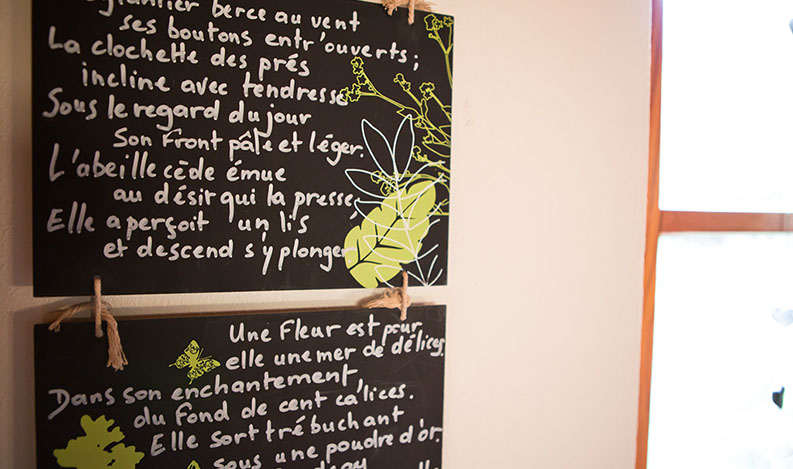 berce au vent
ses boutons entr'ouverts;
La clochette des prés
incline avec tendresse
Sous le regard du jour
Son front pâle et léger.
L'abeille cède émue
au désir qui la presse,
Elle aperçoit un lis
et descend s'y plonger
Une Fleur est pour
elle une mer de délices.
Dans son enchantement,
du fond de cent calices.
Elle sort trébuchant
sous une poudre d'or.